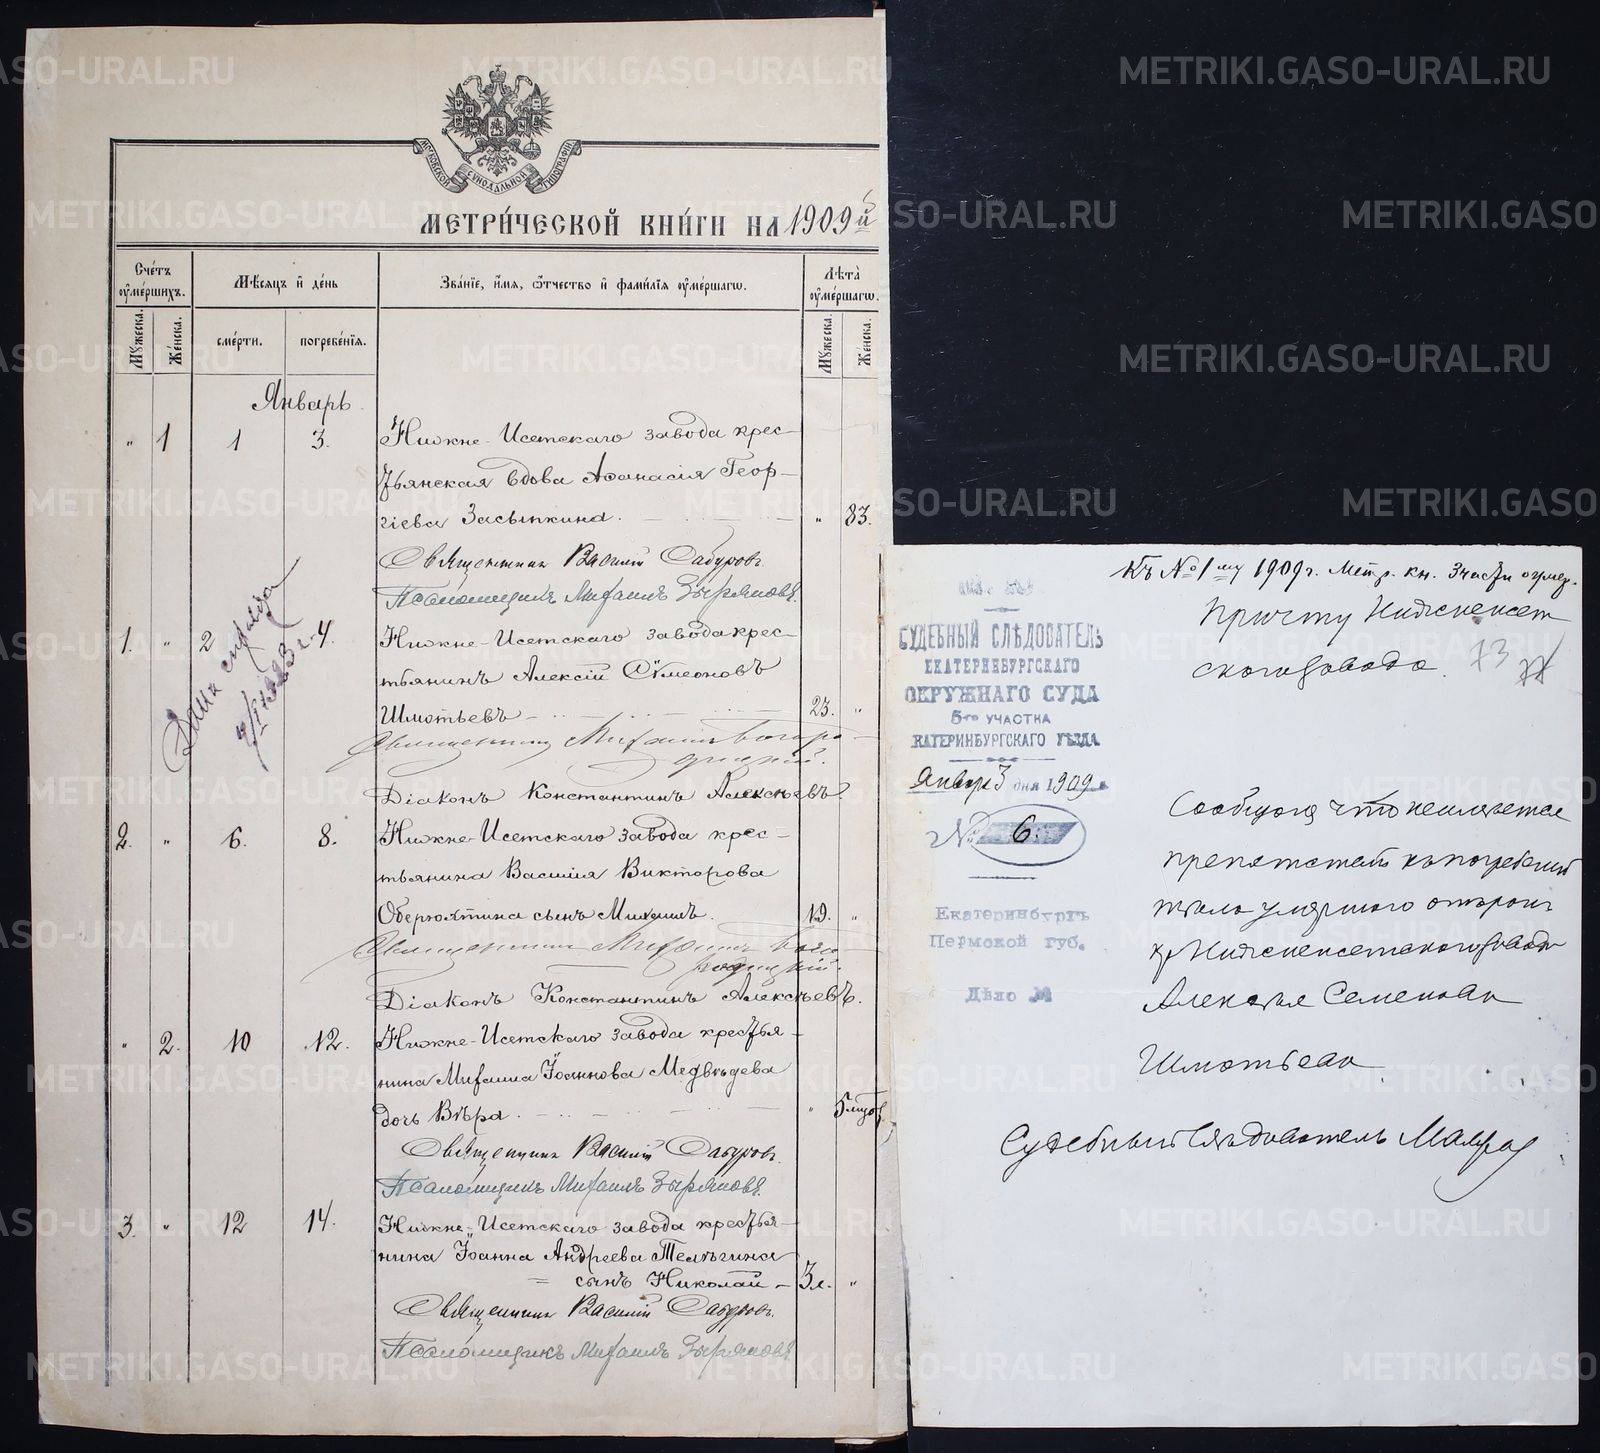 МОСКОВСКОЙ СѴНОДАЛЬНОЙ ТИПОГРАФІИ
МЕТРИ́ЧЕСКОЙ КНИ́ГИ НА 1909й
Счє́тъ ᲂу҆ме́ршихъ.
Мѣ́сяцъ и҆ де́нь
Зва́нїе, и҆́мя, ѻ҆́тчество и҆ фами́лїя ᲂу҆ме́ршагѡ.
Лѣта̀ ᲂу҆ме́ршагѡ.
Му́жеска.
Же́нска.
сме́рти.
погребе́нїя.
Му́жеска.
Же́нска.
Январь.
" 1 1 3. Нижне-Исетскаго завода крес-
тьянская вдова Афанасія Геор-
гіева Засыпкина. " 83.
Священникъ Василій Сабуровъ.
Псаломщикъ Михаилъ Зыряновъ.
Дана справка
1. " 2 4. Нижне-Исетскаго завода крес-
тьянинъ Алексій Сѵмеоновъ
Шмотьевъ 23. "
Священникъ Михаилъ Богоро-
дицкій.
Діаконъ Константинъ Алексѣевъ.
2. " 6. 8. Нижне-Исетскаго завода крес-
тьянина Василія Викторова
Оберюхтина сынъ Михаилъ. 19. "
Священникъ Михаилъ Бого-
родицкій.
Діаконъ Константинъ Алексѣевъ.
" 2. 10 12. Нижне-Исетскаго завода крестья-
нина Михаила Іоаннова Медвѣдева
дочь Вѣра. " 5 мѣс
Священникъ Василій Сабуровъ.
Псаломщикъ Михаилъ Зыряновъ.
3. " 12 14. Нижне-Исетскаго завода крестья-
нина Іоанна Андреева Телѣгина
= сынъ Николай - 3 л. "
Священникъ Василій Сабуровъ.
Псаломщикъ Михаилъ Зыряновъ.
Къ № 1му 1909 г. Метр. кн. 3 части о умер.
СУДЕБНЫЙ СЛѢДОВАТЕЛЬ
ЕКАТЕРИНБУРГСКАГО
ОКРУЖНАГО СУДА
5-го УЧАСТКА
ЕКАТЕРИНБУРГСКАГО УѢЗДА
Январ 3 дня 1909 г.
№ 6.
Екатеринбургъ
Пермской губ.
Дѣло №
Причту Нижнеисет
скаго завода. 73
Сообщаю что не имѣется
препятствій къ погребенію
тѣла умершаго
кр Нижнеисетскаго завода
Алексѣя Семенова
Шмотьева.
Судебный Слѣдователь